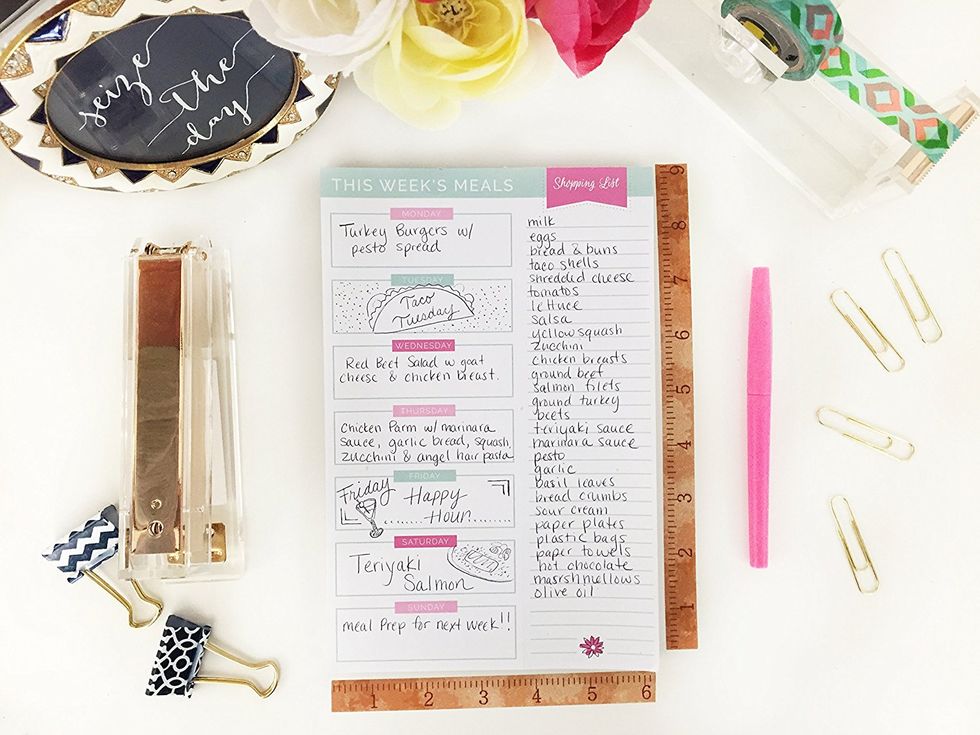 seize
the
day
THIS WEEK'S MEALS
Shopping List
MONDAY
Turkey Burgers w/
pesto spread
TUESDAY
Taco
Tuesday
WEDNESDAY
Red Beet Salad w goat
cheese & chicken breast.
THURSDAY
Chicken Parm w/ marinara
sauce, garlic bread, squash,
zucchini & angel hair pasta
FRIDAY
Friday
Happy
Hour
SATURDAY
Teriyaki
Salmon
SUNDAY
meal Prep for next week!!
milk
eggs
bread & buns
taco shells
shredded cheese
tomatos
lettuce
salsa
yellow squash
zucchini
chicken breasts
ground beef
salmon filets
ground turkey
beets
teriyaki sauce
marinara sauce
pesto
garlic
basil leaves
bread crumbs
sour cream
paper plates
plastic bags
paper towels
hot chocolate
masrshmellows
olive oil
9
8
7
6
5
4
3
2
1
1 2 3 4 5 6